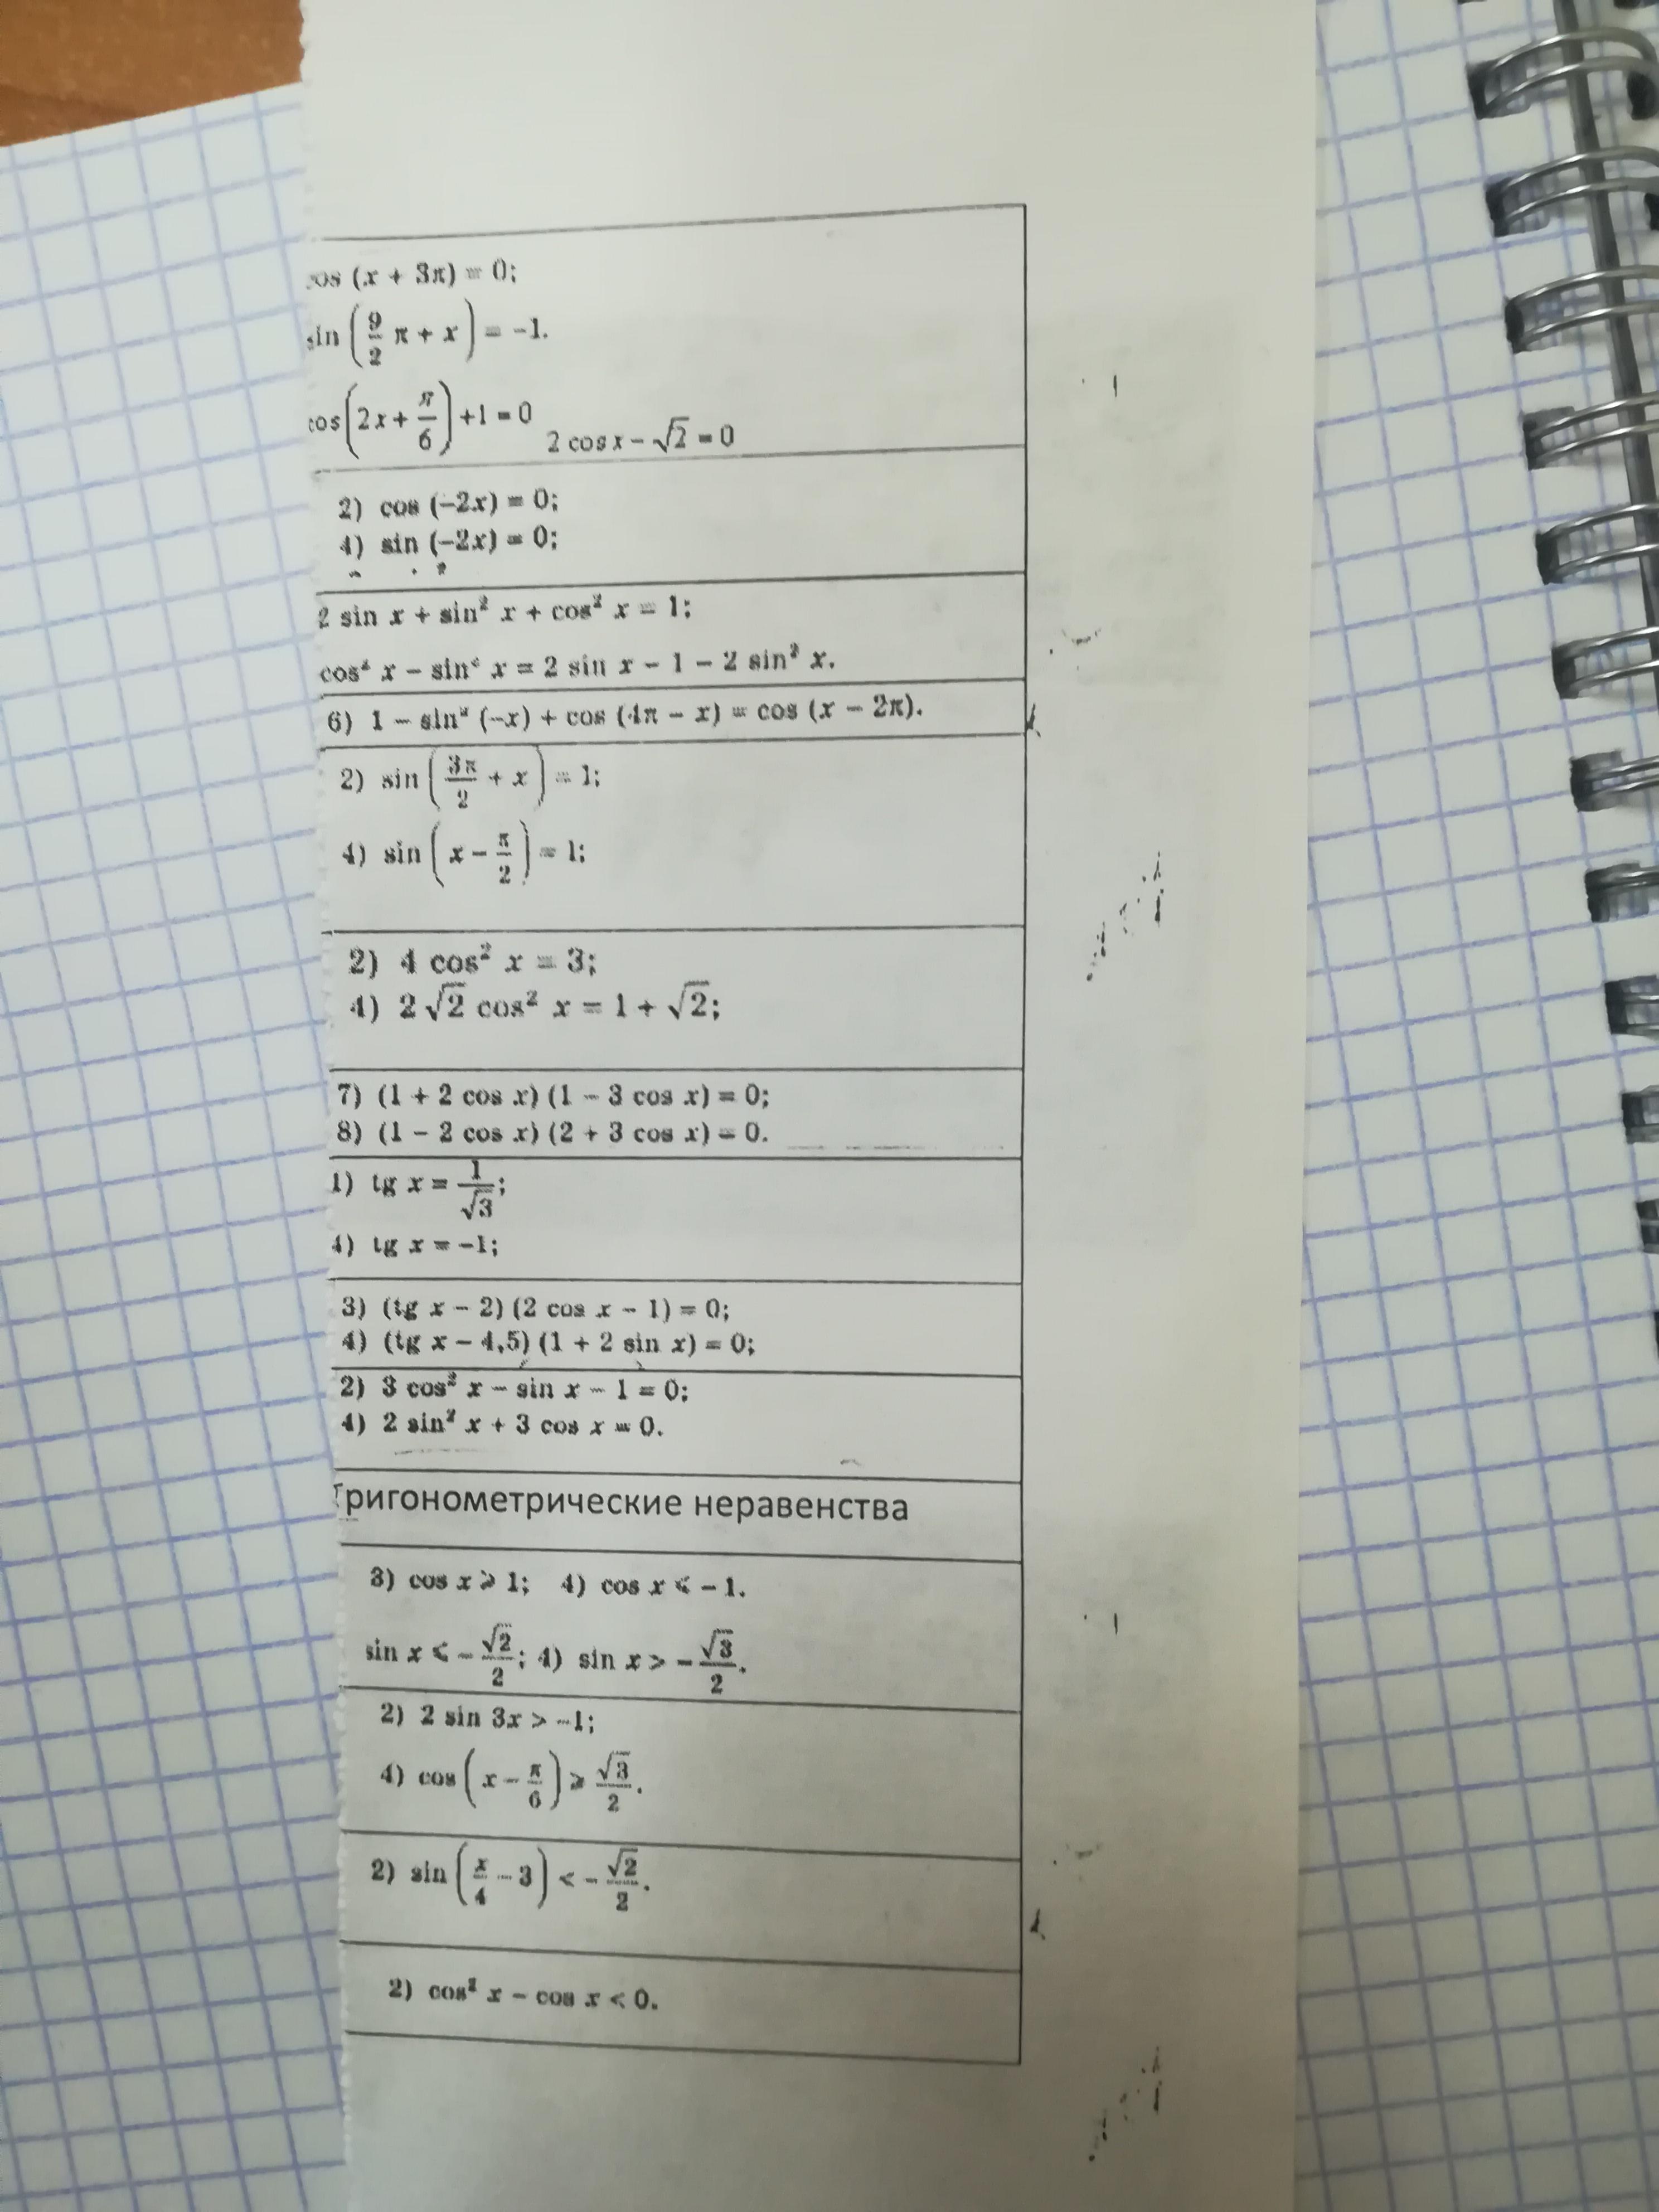 cos (x + 3π) = 0;
sin (9/2 π + x) = -1.
cos(2x + π/6) + 1 = 0
2 cos x - √2 = 0
2) cos (-2x) = 0;
4) sin (-2x) = 0;
2 sin x + sin² x + cos² x = 1;
cos² x - sin² x = 2 sin x - 1 - 2 sin² x.
6) 1 - sin² (-x) + cos (4π - x) = cos (x - 2π).
2) sin (3π/2 + x) = 1;
4) sin (x - π/2) = 1;
2) 4 cos² x = 3;
4) 2√2 cos² x = 1 + √2;
7) (1 + 2 cos x) (1 - 3 cos x) = 0;
8) (1 - 2 cos x) (2 + 3 cos x) = 0.
1) tg x = 1/√3;
4) tg x = -1;
3) (tg x - 2) (2 cos x - 1) = 0;
4) (tg x - 4,5) (1 + 2 sin x) = 0;
2) 3 cos² x - sin x - 1 = 0;
4) 2 sin² x + 3 cos x = 0.
Тригонометрические неравенства
3) cos x ⩾ 1; 4) cos x ⩽ -1.
sin x ⩽ -√2/2; 4) sin x > -√3/2.
2) 2 sin 3x > -1;
4) cos (x - π/6) ⩾ √3/2.
2) sin (x/4 - 3) < -√2/2.
2) cos² x - cos x < 0.